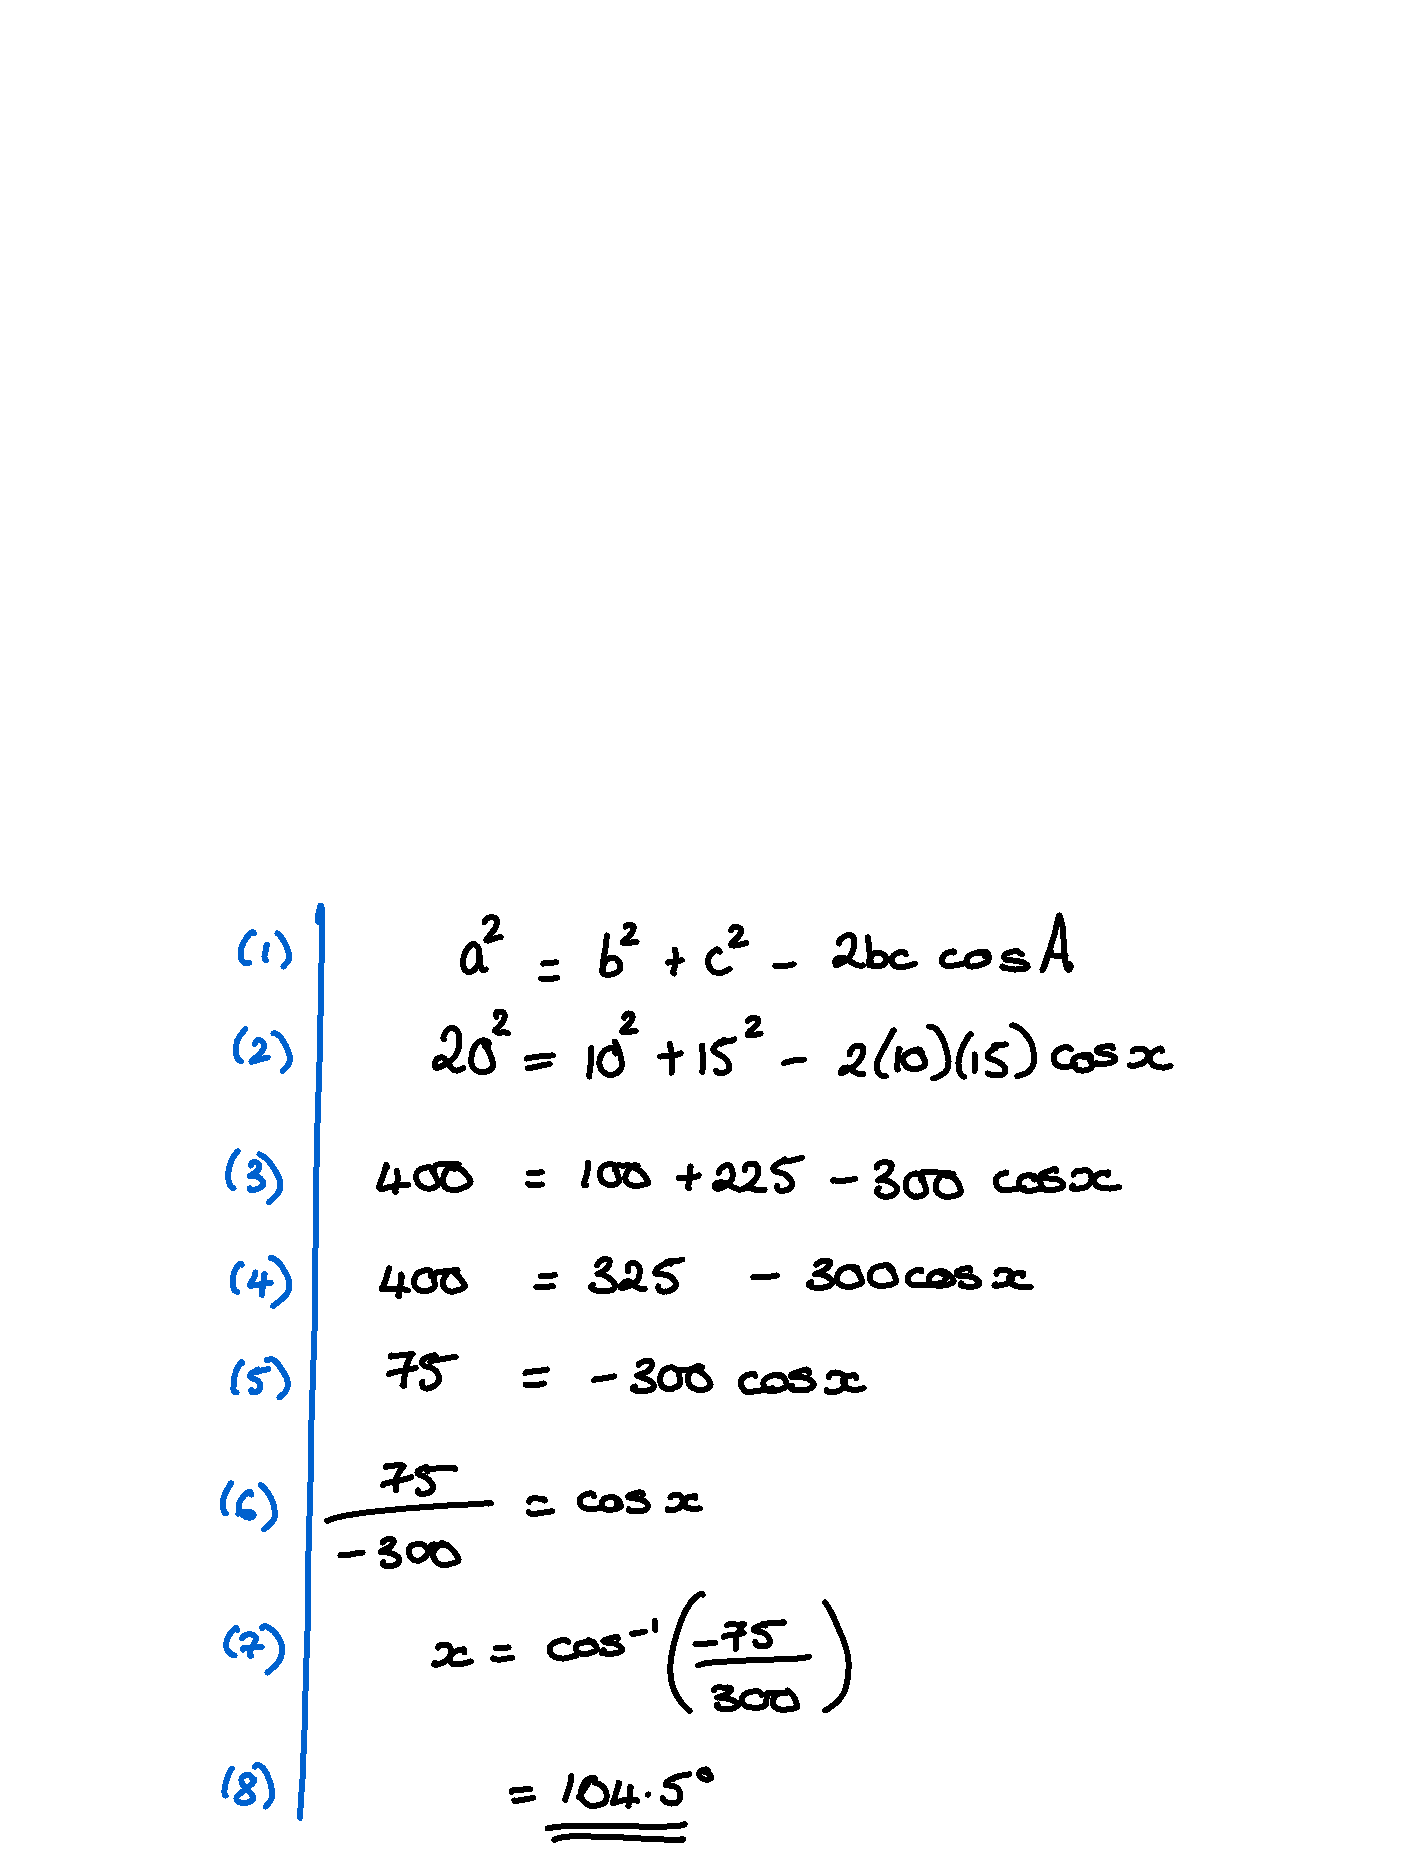 (1) a² = b² + c² - 2bc cos A
(2) 20² = 10² + 15² - 2(10)(15) cos x
(3) 400 = 100 + 225 - 300 cos x
(4) 400 = 325 - 300 cos x
(5) 75 = -300 cos x
(6) 75/-300 = cos x
(7) x = cos⁻¹(-75/300)
(8) = 104.5°